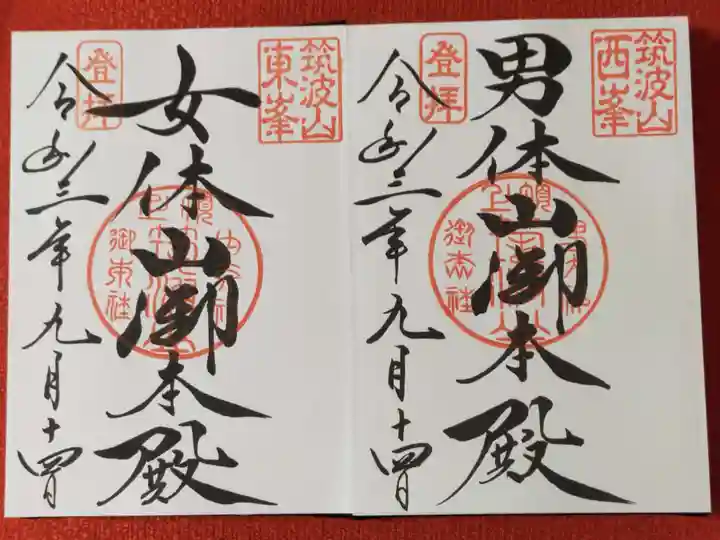 筑波山
西峯
男体山御本殿
登拝
令和三年九月十四日
筑波山
東峯
女体山御本殿
登拝
令和三年九月十四日
御東社